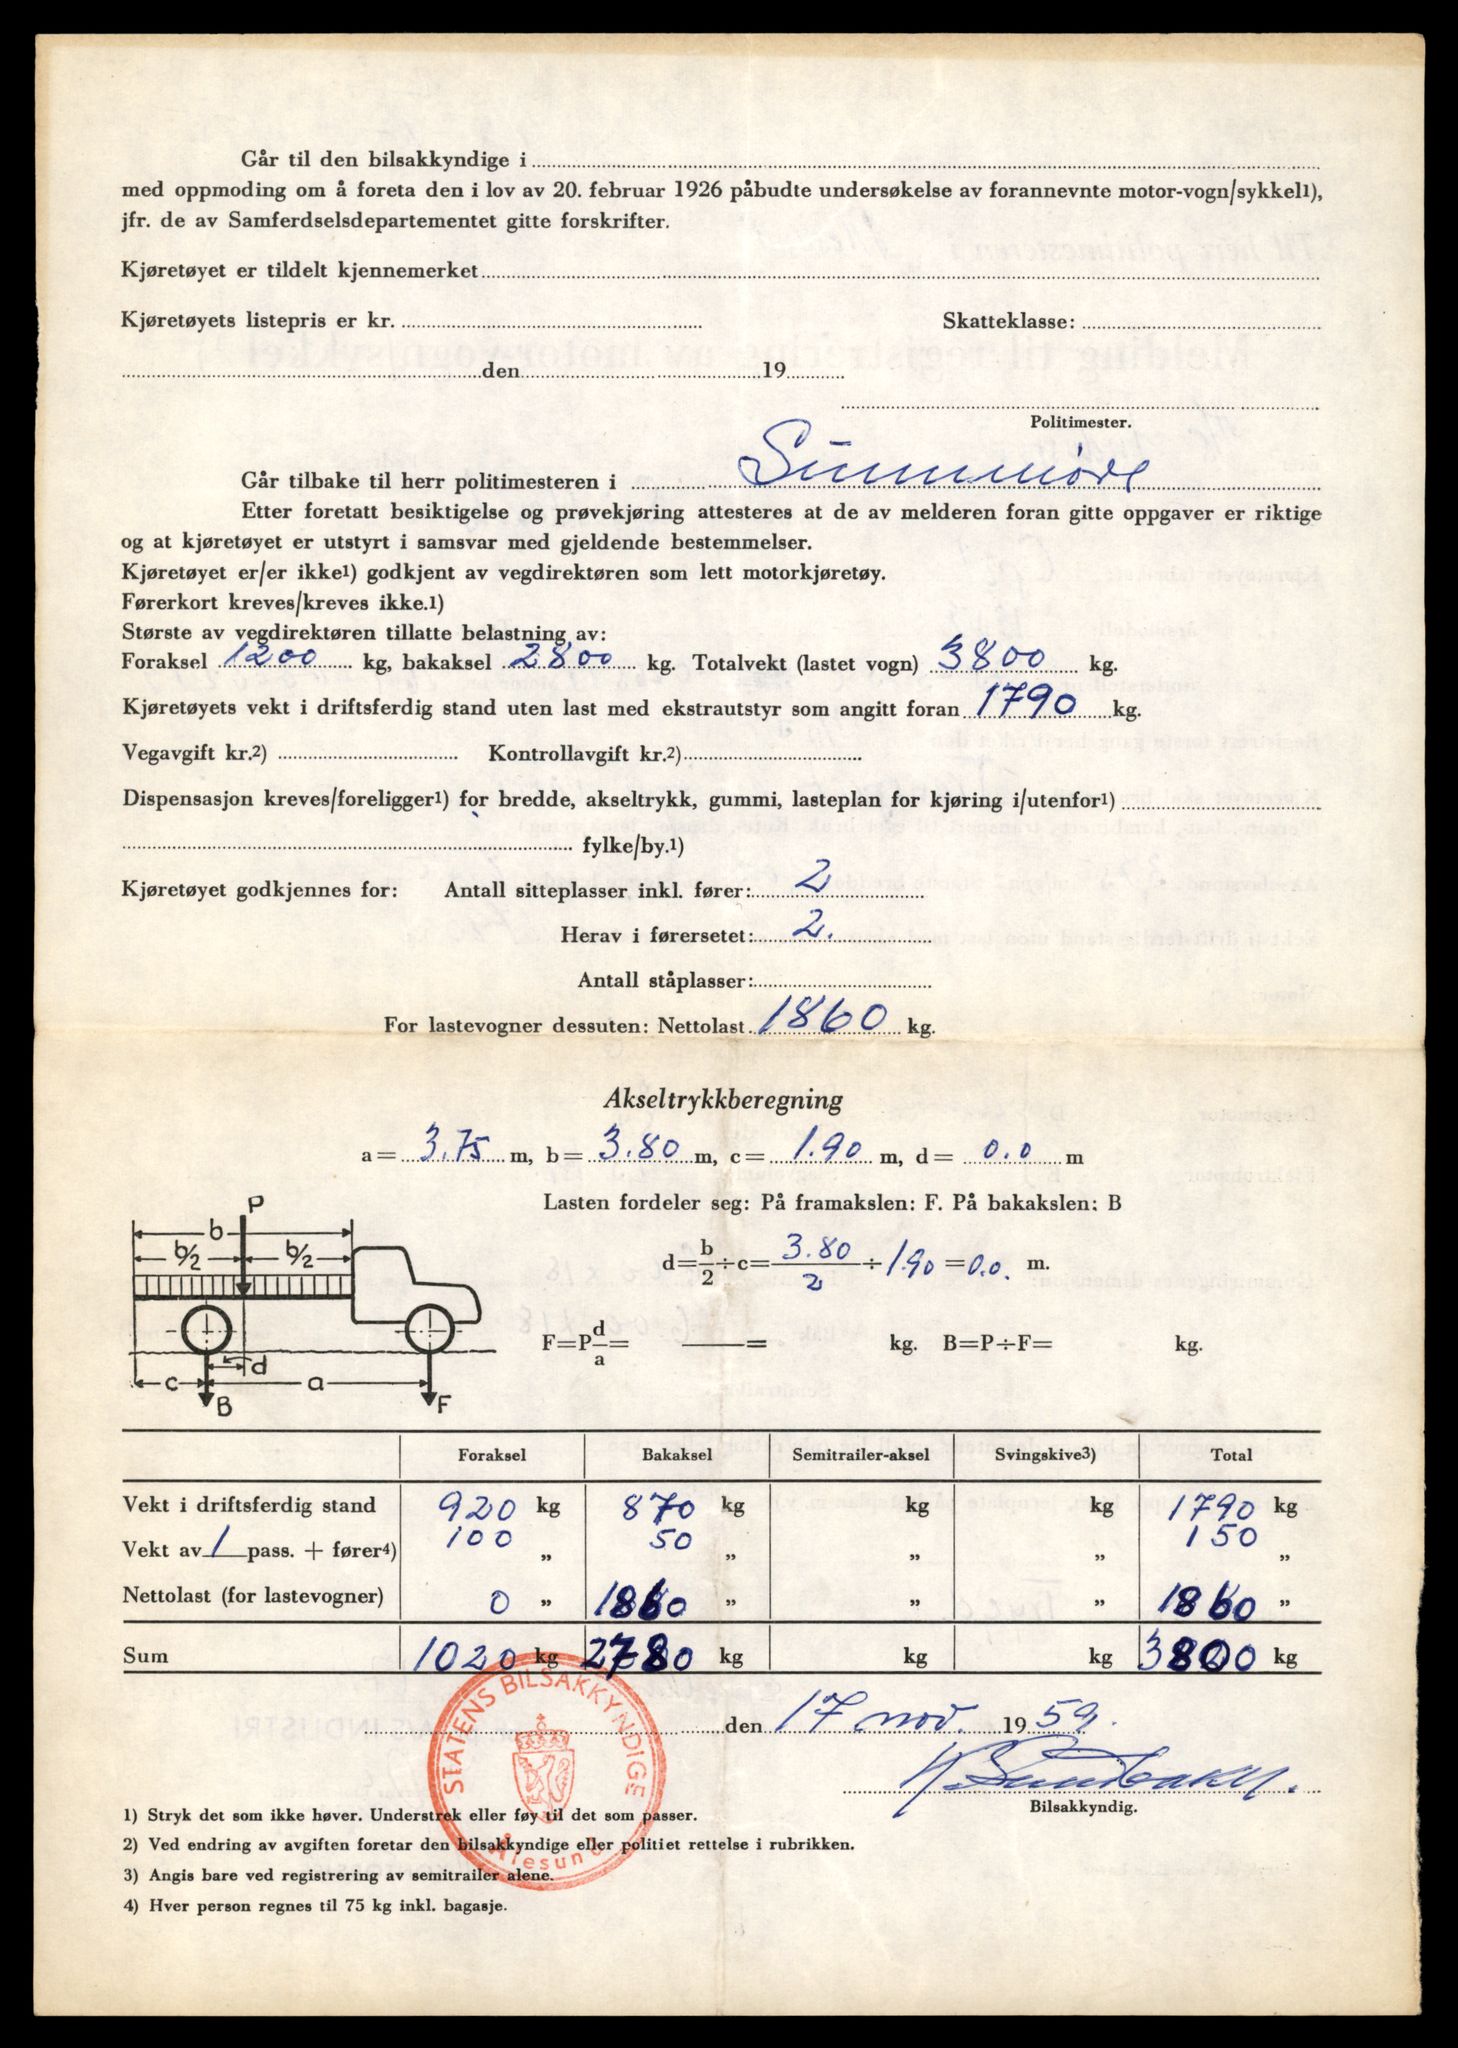 Går til den bilsakkyndige i
med oppmoding om å foreta den i lov av 20. februar 1926 påbudte undersøkelse av forannevnte motor-vogn/sykkel1),
jfr. de av Samferdselsdepartementet gitte forskrifter.
Kjøretøyet er tildelt kjennemerket
Kjøretøyets listepris er kr. Skatteklasse:
den 19
Politimester.
Går tilbake til herr politimesteren i Sunnmöre
Etter foretatt besiktigelse og prøvekjøring attesteres at de av melderen foran gitte oppgaver er riktige
og at kjøretøyet er utstyrt i samsvar med gjeldende bestemmelser.
Kjøretøyet er/er ikke1) godkjent av vegdirektøren som lett motorkjøretøy.
Førerkort kreves/kreves ikke.1)
Største av vegdirektøren tillatte belastning av:
Foraksel 1200 kg, bakaksel 2800 kg. Totalvekt (lastet vogn) 3800 kg.
Kjøretøyets vekt i driftsferdig stand uten last med ekstrautstyr som angitt foran 1790 kg.
Vegavgift kr.2) Kontrollavgift kr.2)
Dispensasjon kreves/foreligger1) for bredde, akseltrykk, gummi, lasteplan for kjøring i/utenfor1)
fylke/by.1)
Kjøretøyet godkjennes for: Antall sitteplasser inkl. fører: 2
Herav i førersetet: 2.
Antall ståplasser:
For lastevogner dessuten: Nettolast 1860 kg.
Akseltrykkberegning
a = 3.75 m, b = 3.80 m, c = 1.90 m, d = 0.0 m
Lasten fordeler seg: På framakslen: F. På bakakslen: B
P
b
b/2 b/2
d = b/2 ÷ c = 3.80/2 ÷ 1.90 = 0.0. m.
F = P d/a = = kg. B = P ÷ F = kg.
d
c a
B F
Foraksel Bakaksel Semitrailer-aksel Svingskive3) Total
Vekt i driftsferdig stand 920 kg 870 kg kg kg 1790 kg
Vekt av 1 pass. + fører4) 100 „ 50 „ „ „ 150 „
Nettolast (for lastevogner) 0 „ 1860 „ „ „ 1860 „
Sum 1020 kg 2780 kg kg kg 3800 kg
STATENS BILSAKKYNDIGE
Ålesund
den 17 nov. 1959.
Bilsakkyndig.
1) Stryk det som ikke høver. Understrek eller føy til det som passer.
2) Ved endring av avgiften foretar den bilsakkyndige eller politiet rettelse i rubrikken.
3) Angis bare ved registrering av semitrailer alene.
4) Hver person regnes til 75 kg inkl. bagasje.